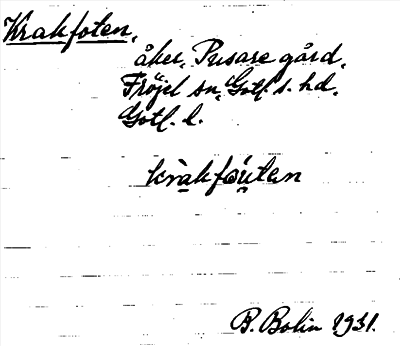 Krakfoten,
åker, Pusare gård,
Fröjel sn, Gotl. s. hd.
Gotl. l.
kràkfóu̯tan
B. Bolin 1931.